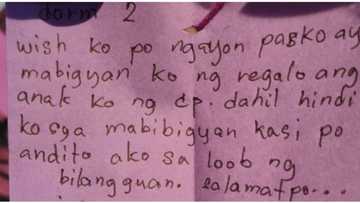 dorm 2
wish ko po ngayon pasko ay
mabigyan ko ng regalo ang
anak ko ng cp. dahil hindi
ko sya mabibigyan kasi po
andito ako sa loob ng
bilangguan. salamat po...